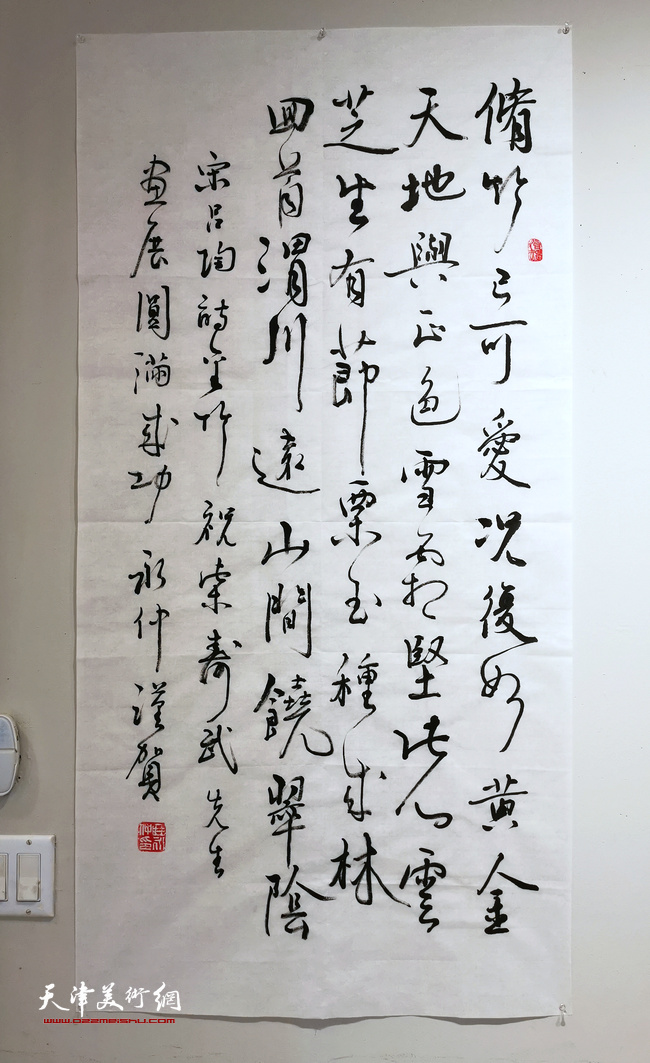 脩竹已可愛況復如黃金
天地與正色雪霜堅此心雲
芝生有節粟玉種成林
回首渭川遠山間饒翠陰
宋吕陶詩金竹祝索壽武先生
画展圓滿成功永仲謹賀
天津美術網
www.022meishu.com